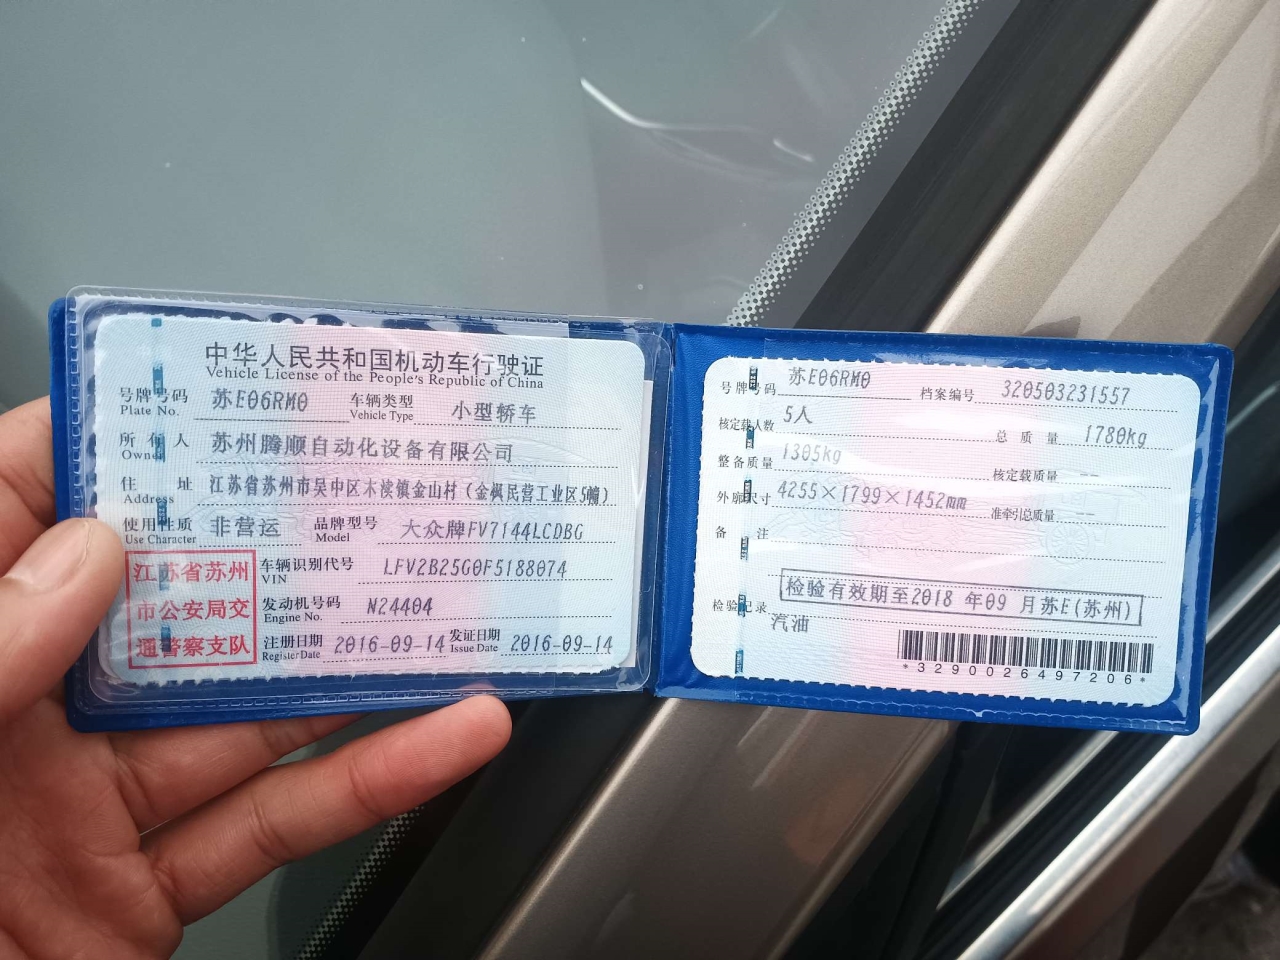 中华人民共和国机动车行驶证
Vehicle License of the People's Republic of China
号牌号码 苏E06RM0 车辆类型 小型轿车
Plate No. Vehicle Type
所有人 苏州腾顺自动化设备有限公司
Owner
住址 江苏省苏州市吴中区木渎镇金山村（金枫民营工业区5幢）
Address
使用性质 非营运 品牌型号 大众牌FV7144LCDBG
Use Character Model
江苏省苏州
市公安局交
通警察支队
车辆识别代号 LFV2B25G0F5188074
VIN
发动机号码 N24404
Engine No.
注册日期 2016-09-14 发证日期 2016-09-14
Register Date Issue Date
号牌号码 苏E06RM0 档案编号 320503231557
核定载人数 5人 总质量 1780kg
整备质量 1305kg 核定载质量 --
外廓尺寸 4255×1799×1452mm 准牵引总质量 --
备注
检验记录 检验有效期至2018 年09 月苏E(苏州)
汽油
*3290026497206*